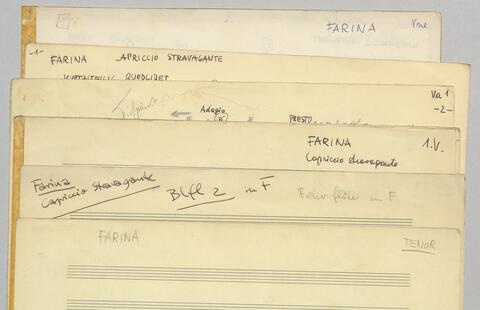 FARINA Vne
-1-
FARINA APRICCIO STRAVAGANTE
QUODLIBET
Va 1
-2-
Adagio PRESTO
FARINA 1.V.
Capriccio stravagante
Farina
Capriccio stravagante
Bfl 2 in F
in F
FARINA
TENOR